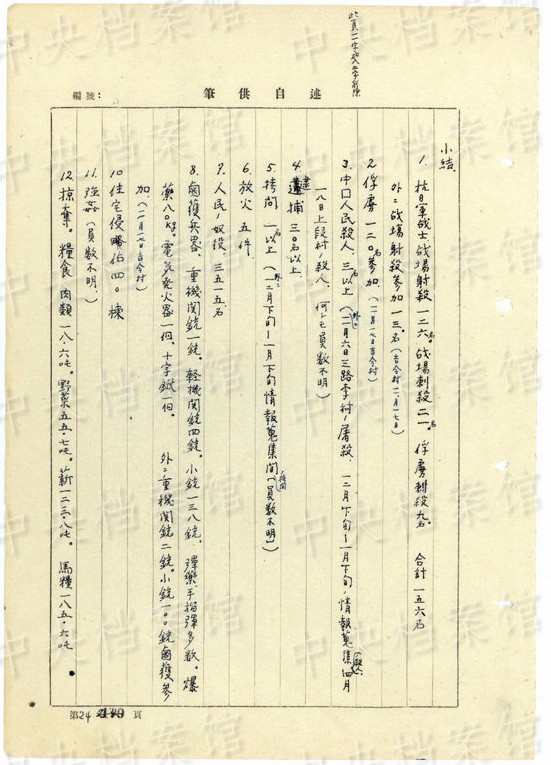 述自供筆
編號：
小結
1. 抗日軍战士战場射殺一二六名。战場刺殺二一名。俘虜刺殺九名。 合計一五六名
外ニ战場射殺参加一三名（吉今村二月一七日）
2. 俘虜一二〇名参加（二月一七日吉今村）
3. 中国人民殺人、三名以上（二月六日三路李村ノ屠殺、一二月下旬ー一月下旬ノ情報蒐集四月
一八日上段村ノ殺人、何レモ員数不明）
4. 逮捕 三〇名以上
5. 拷問 一名以上（一二月下旬ー一月下旬情報蒐集間ノ拷問（員数不明）
6. 放火 五件
7. 人民ノ奴役、三五一五名
8. 鹵獲兵器、重機関銃一銃。軽機関銃四銃。小銃一三八銃。弾薬手榴弾多数。爆
薬八〇kg。電気発火器一個。十字鍬一個。 外ニ重機関銃二銃。小銃一〇〇銃鹵獲参
加（二月一七日吉今村）
10 住宅侵略佔四〇棟
11. 強姦（員数不明。）
12. 掠奪。糧食 肉類一八.六吨。野菜五五.七吨。薪一二三.八吨。 馬糧一八五.六吨
第24頁
中央档案馆